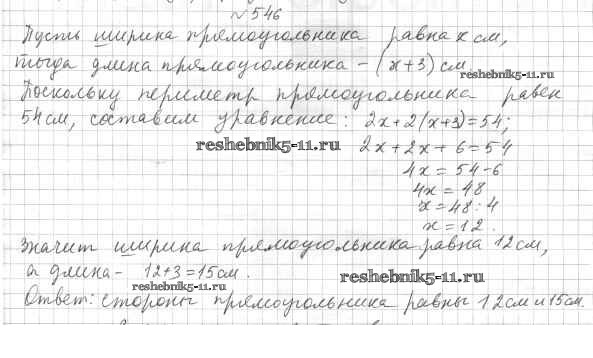 №546
Пусть ширина прямоугольника равна x см,
тогда длина прямоугольника - (x+3) см.
reshebnik5-11.ru
Поскольку периметр прямоугольника равен
54 см, составим уравнение: 2x+2(x+3)=54;
reshebnik5-11.ru
2x+2x+6=54
4x=54-6
4x=48
x=48:4
x=12.
Значит ширина прямоугольника равна 12 см,
а длина - 12+3=15 см.
reshebnik5-11.ru
reshebnik5-11.ru
Ответ: стороны прямоугольника равны 12 см и 15 см.